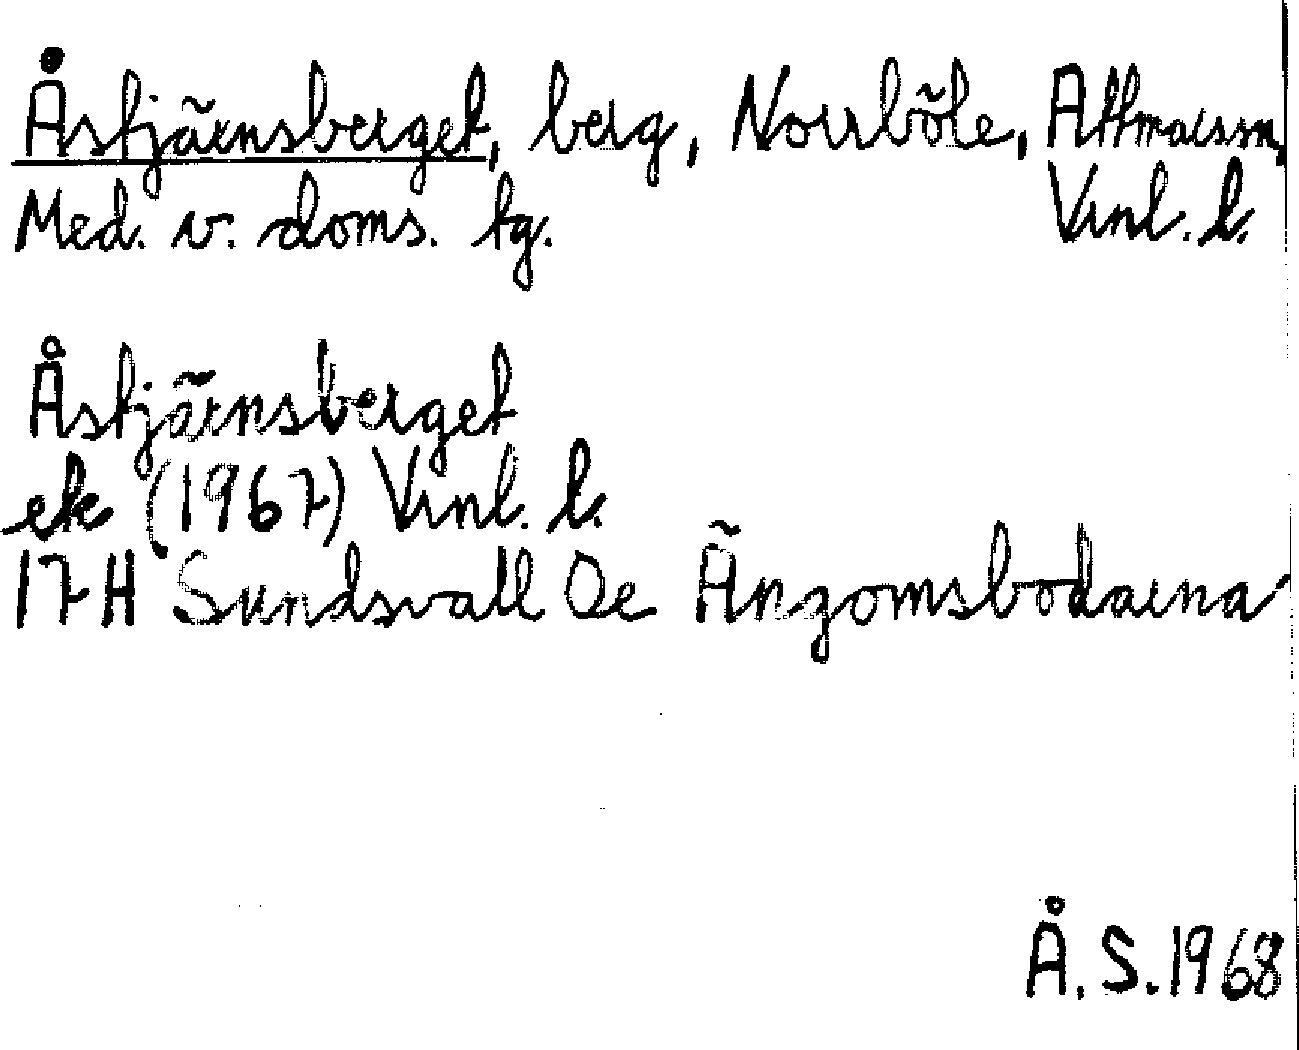 Åstjärnsberget, berg, Norrböle, Attmarssn,
Med. v. doms. tg. Vnl. l.
Åstjärnsberget
ek (1967) Vnl. l.
17 H Sundsvall Oe Ängomsbodarna
Å. S. 1968